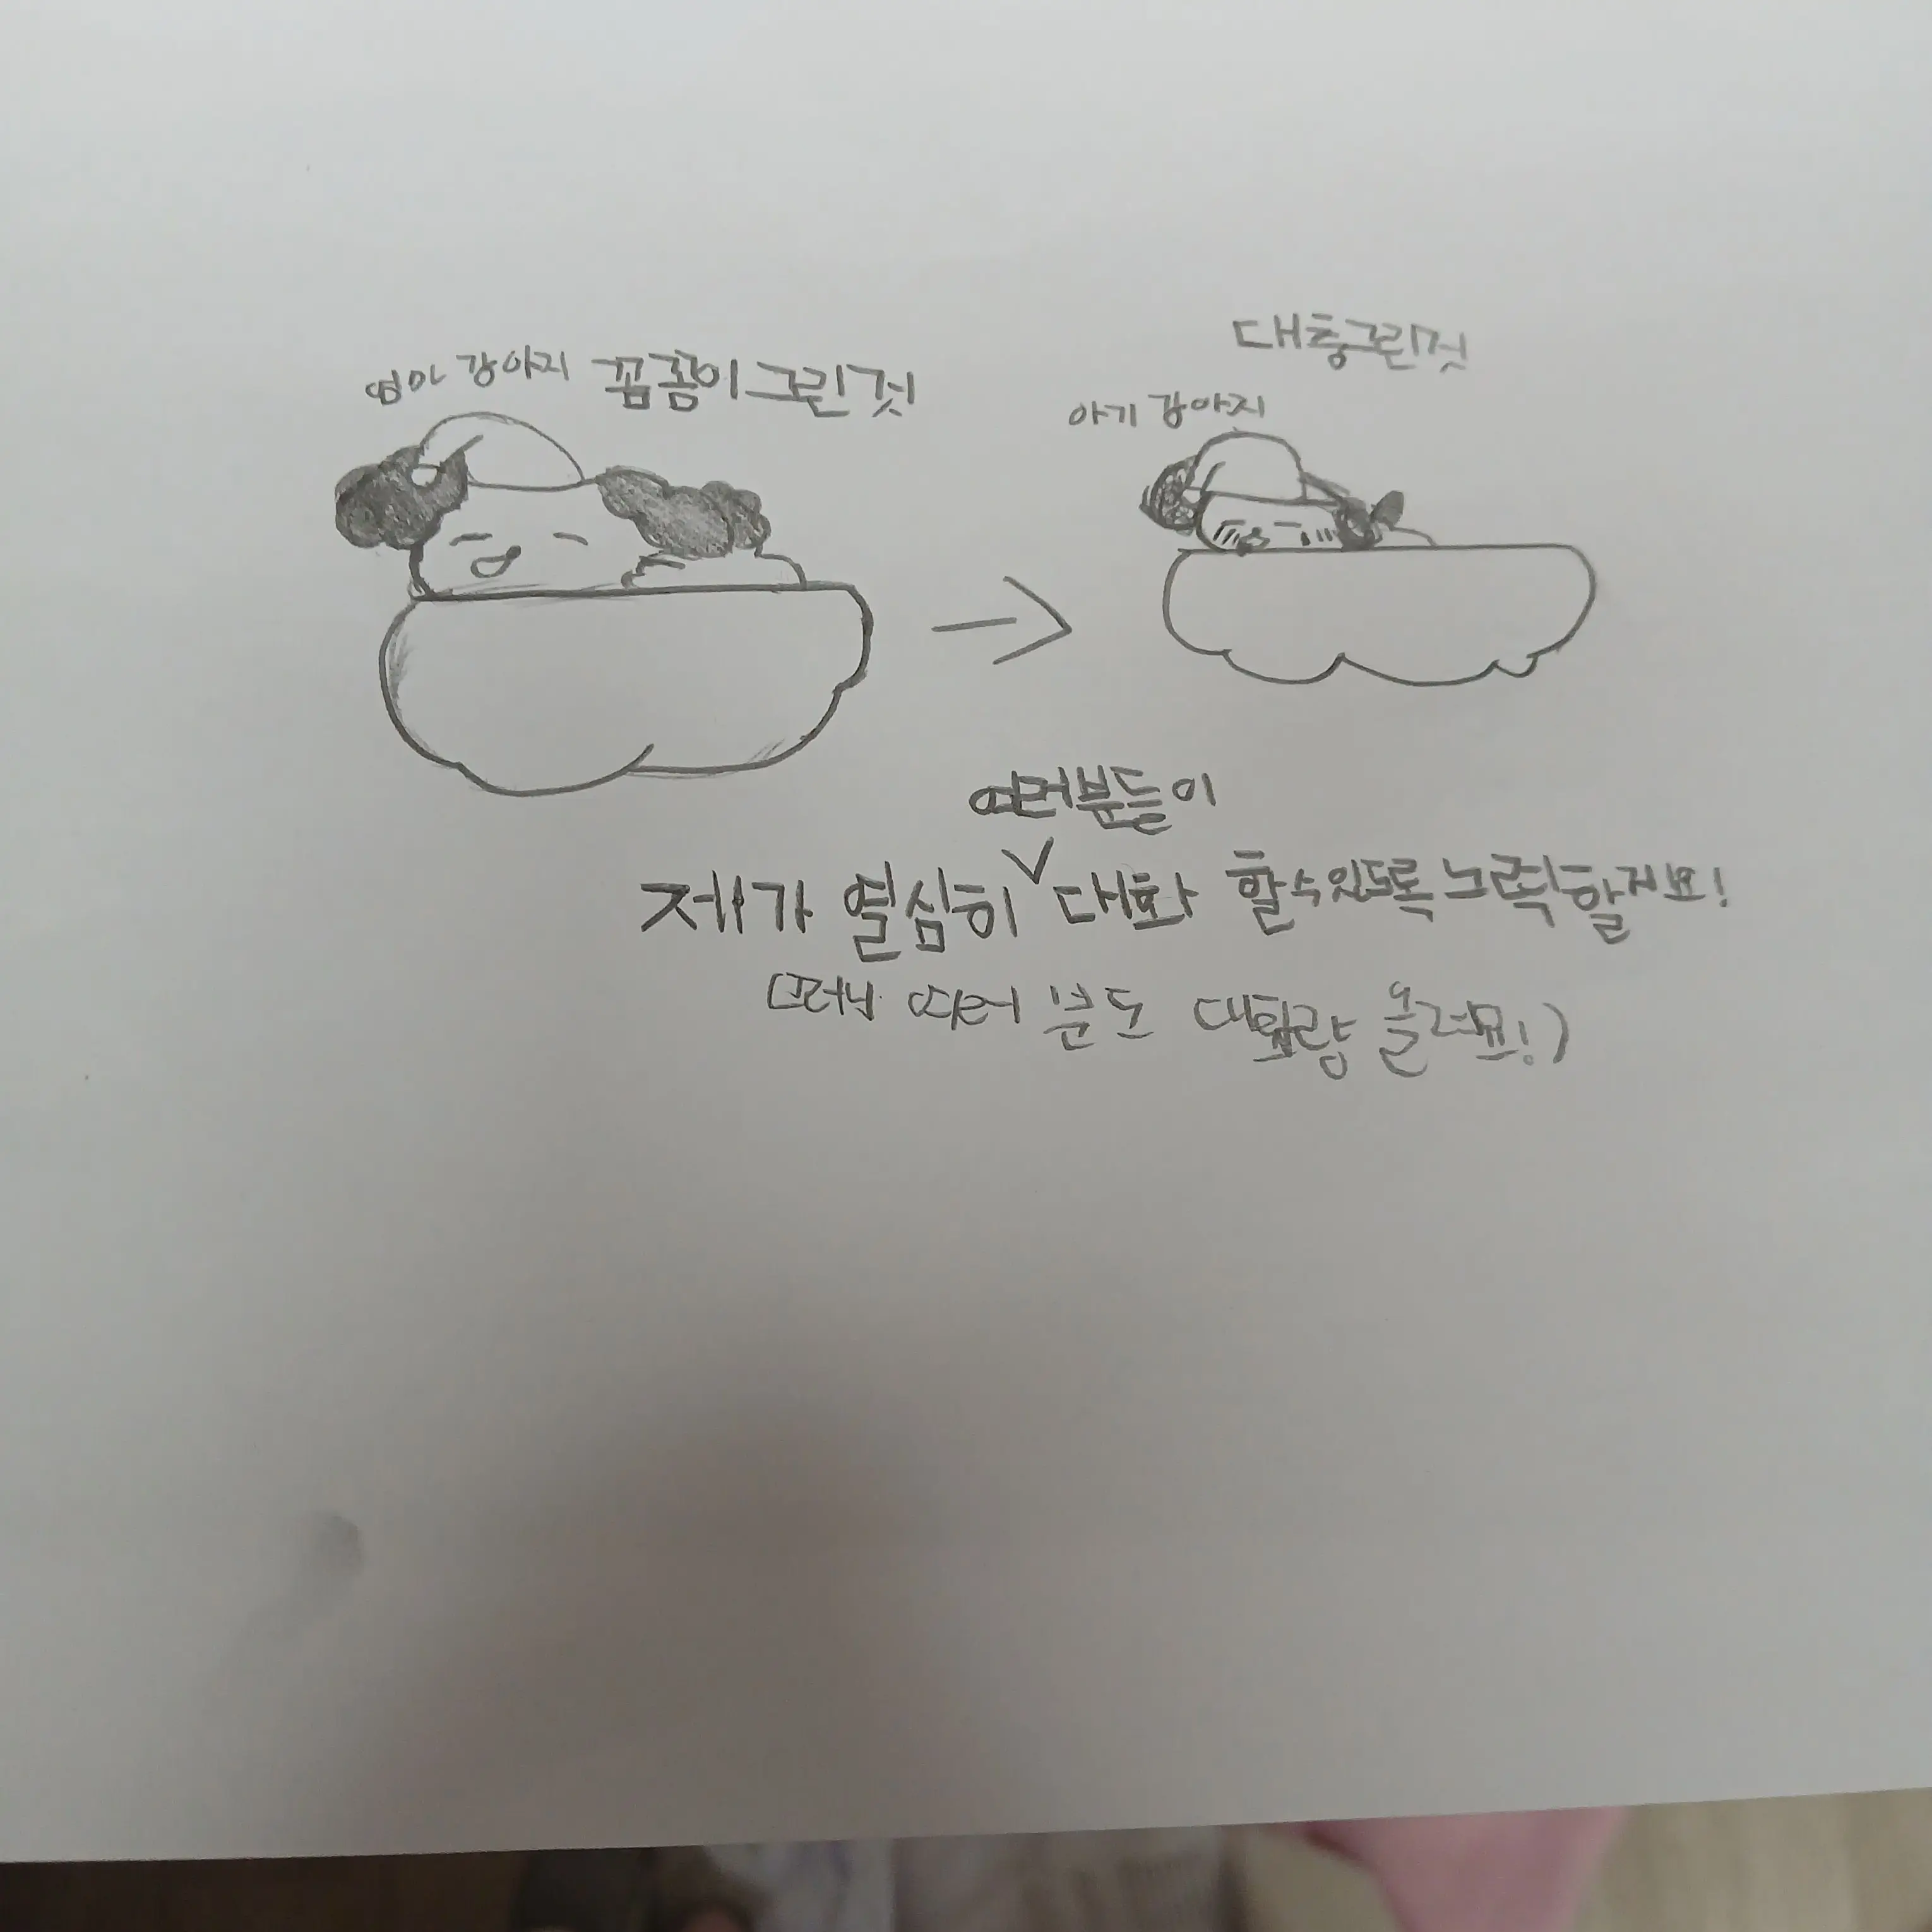 엄마 강아지 꼼꼼이그린것
대충그린것
아기 강아지
여러분들이
제가 열심히 ∨ 대화 할수있도록 노력할게요!
(그러니 여러 분도 대화량 올려요!)